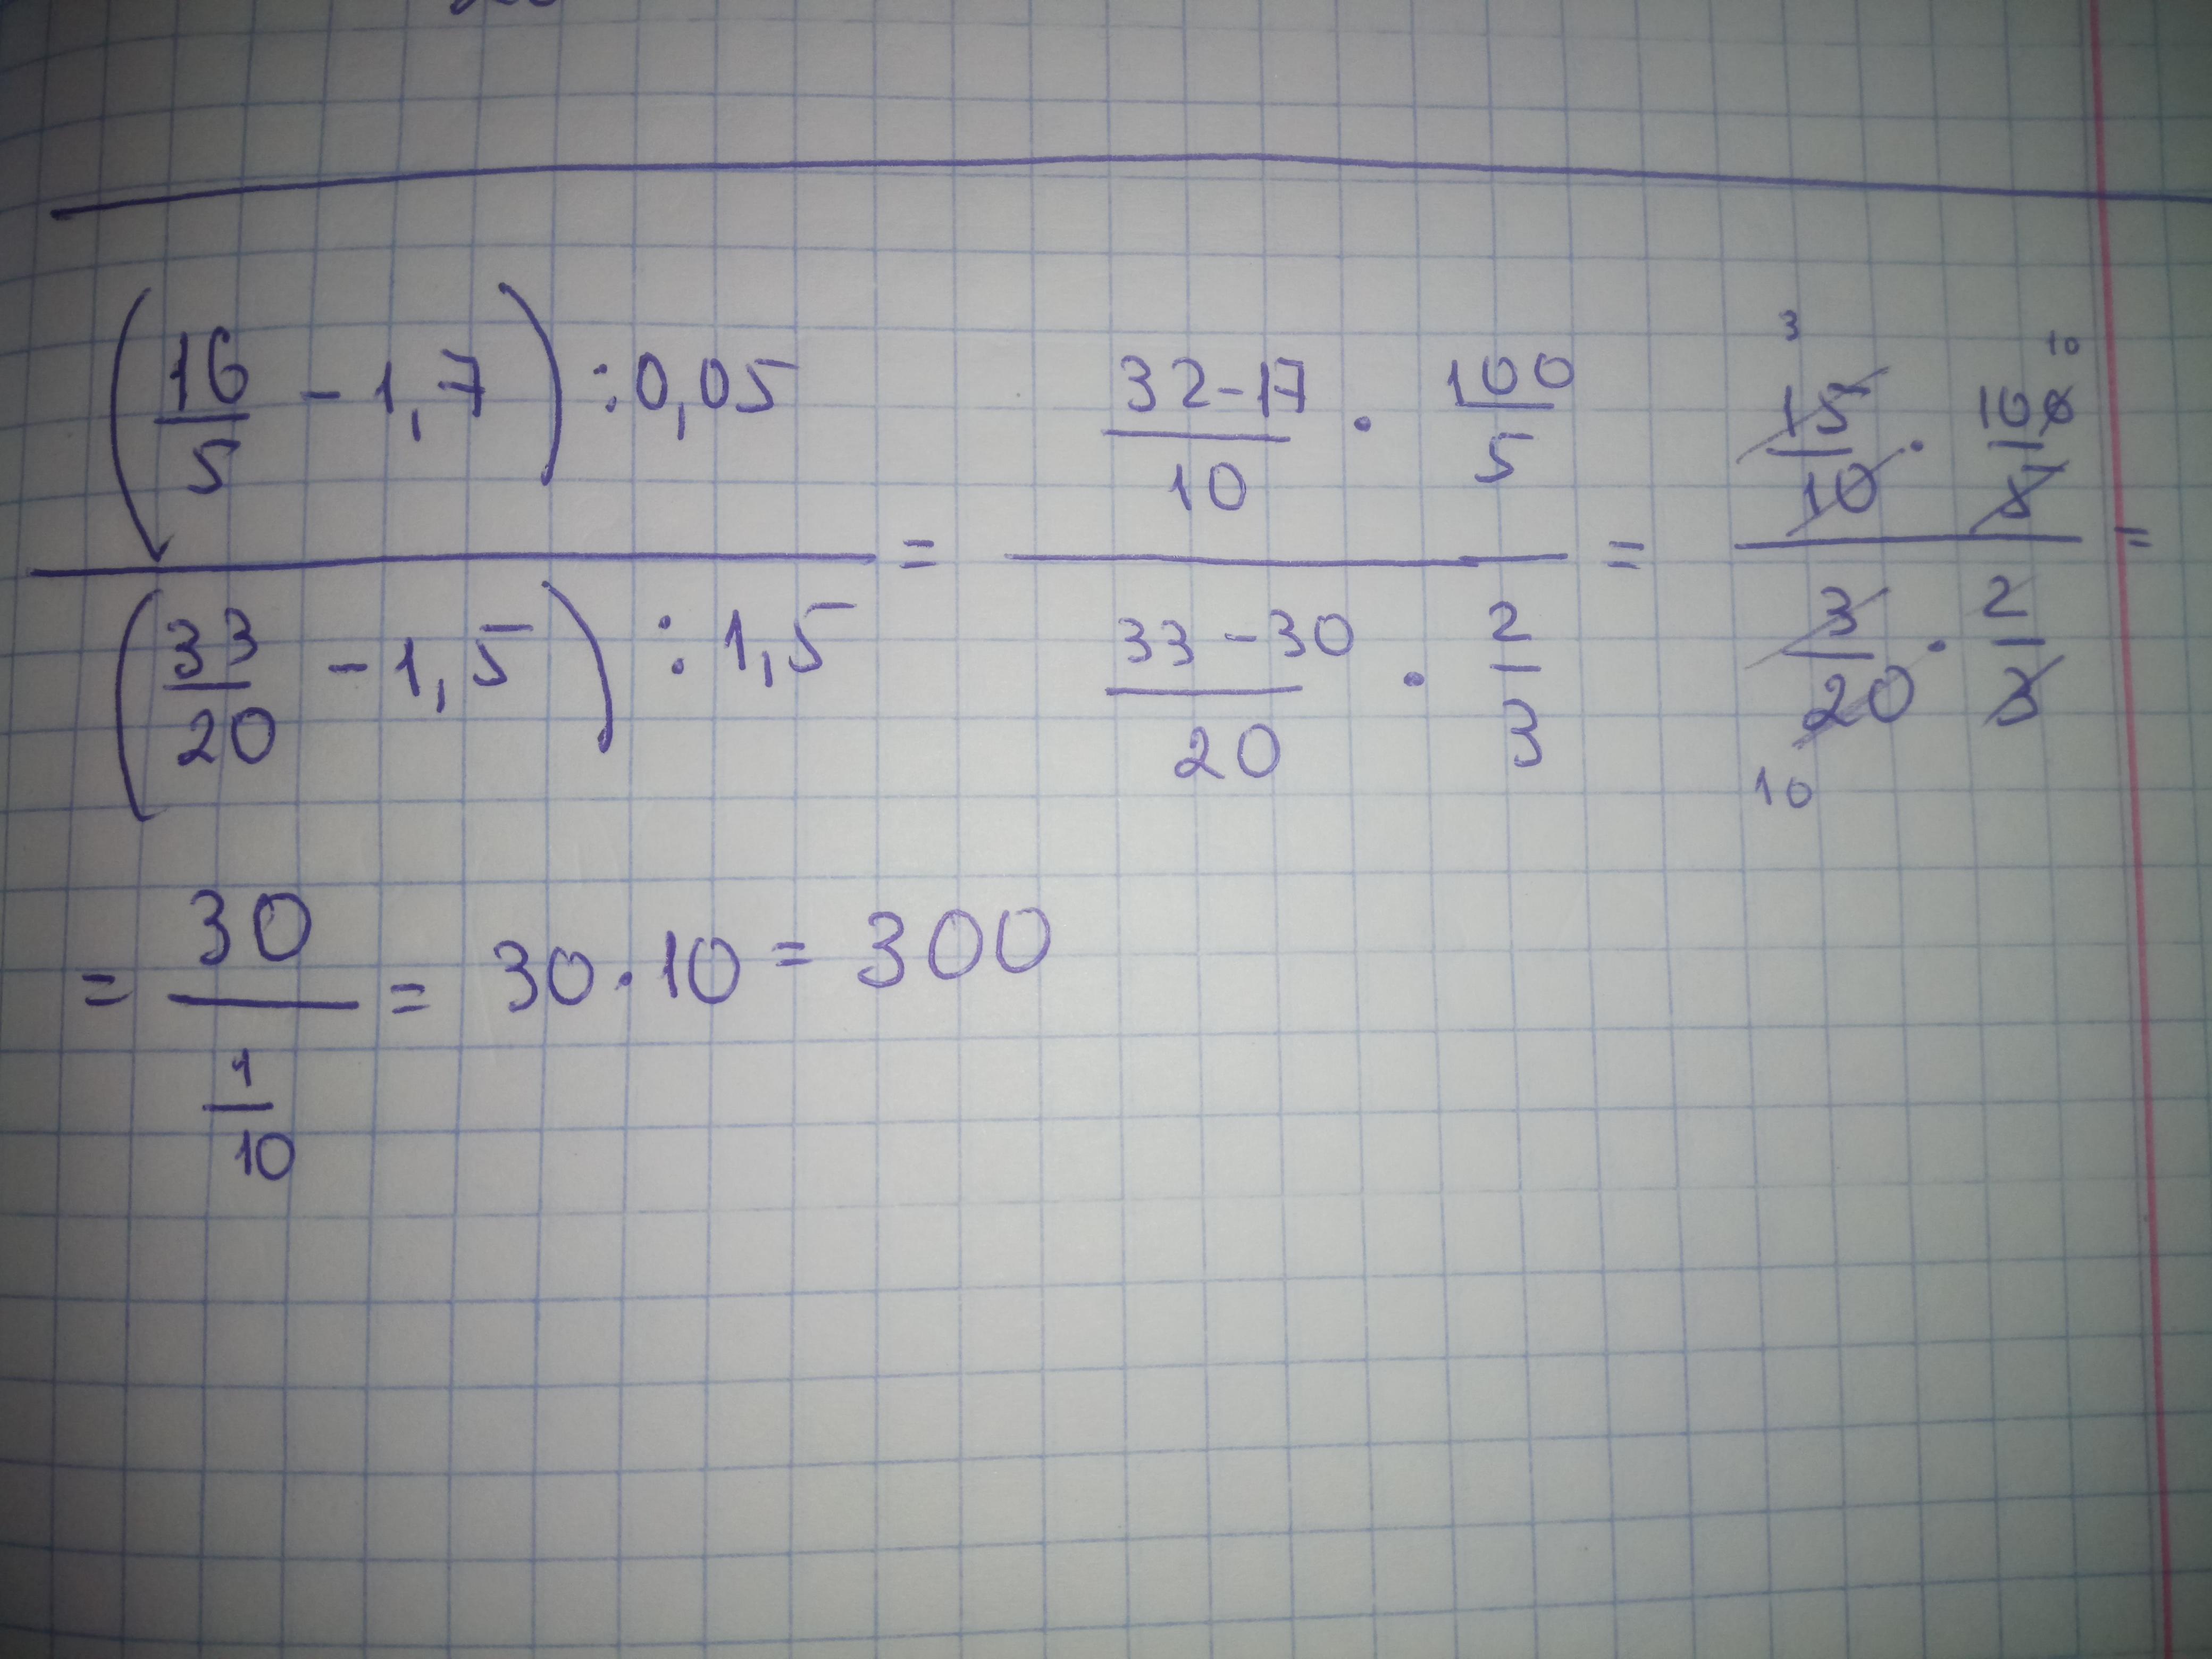 (16/5 - 1,7) : 0,05 / (33/20 - 1,5) : 1,5 = 32-17/10 · 100/5 / 33-30/20 · 2/3 = 3 15/10 · 100/5 10 / 3/20 10 · 2/3 =
= 30 / 1/10 = 30 · 10 = 300